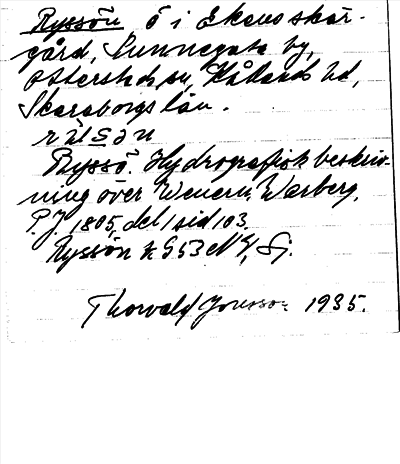 Ryssön ö i Ekens skär-
gård, Sunnegata by,
Otterstad sn, Kållands hd,
Skaraborgs län.
Ryssö. Hydrografisk beskriv-
ning över Wenern, Warberg,
P. J. 1805, del 1 sid 103.
Ryssön k G 53
Thorvald Jonsson 1935.